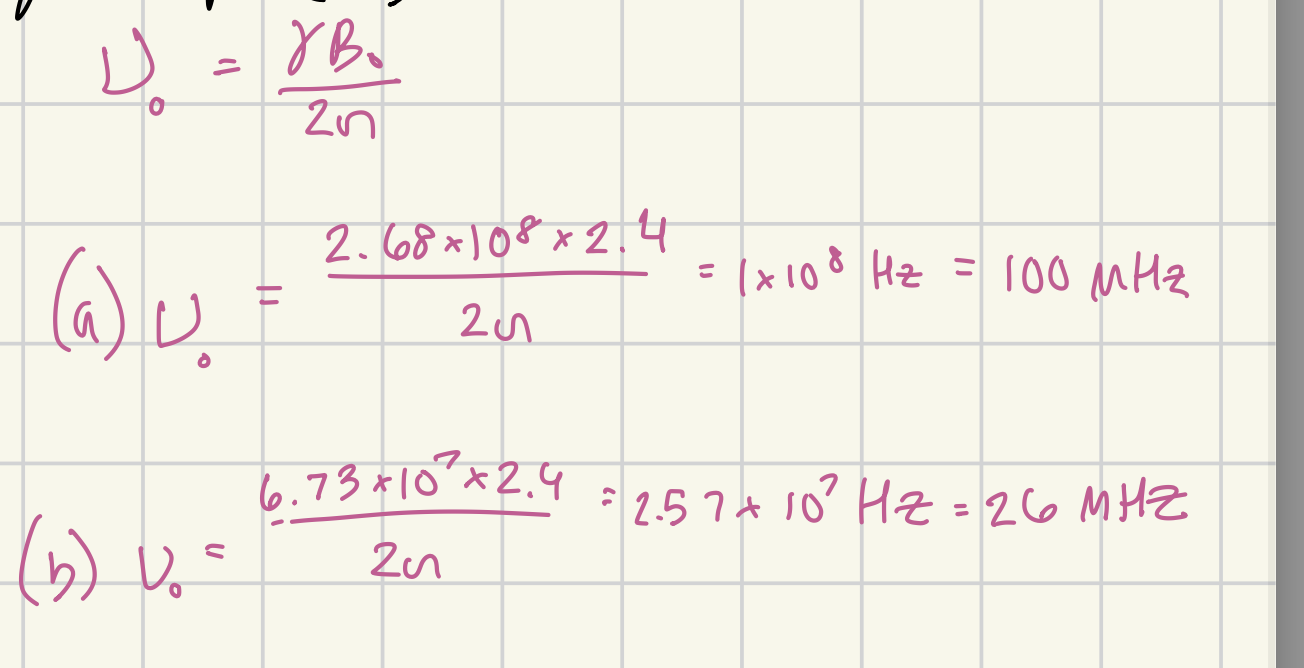 ν₀ = γB₀ / 2π
(a) ν₀ = 2.68×10⁸ × 2.4 / 2π = 1×10⁸ Hz = 100 MHz
(b) ν₀ = 6.73×10⁷ × 2.4 / 2π = 2.57× 10⁷ Hz = 26 MHz